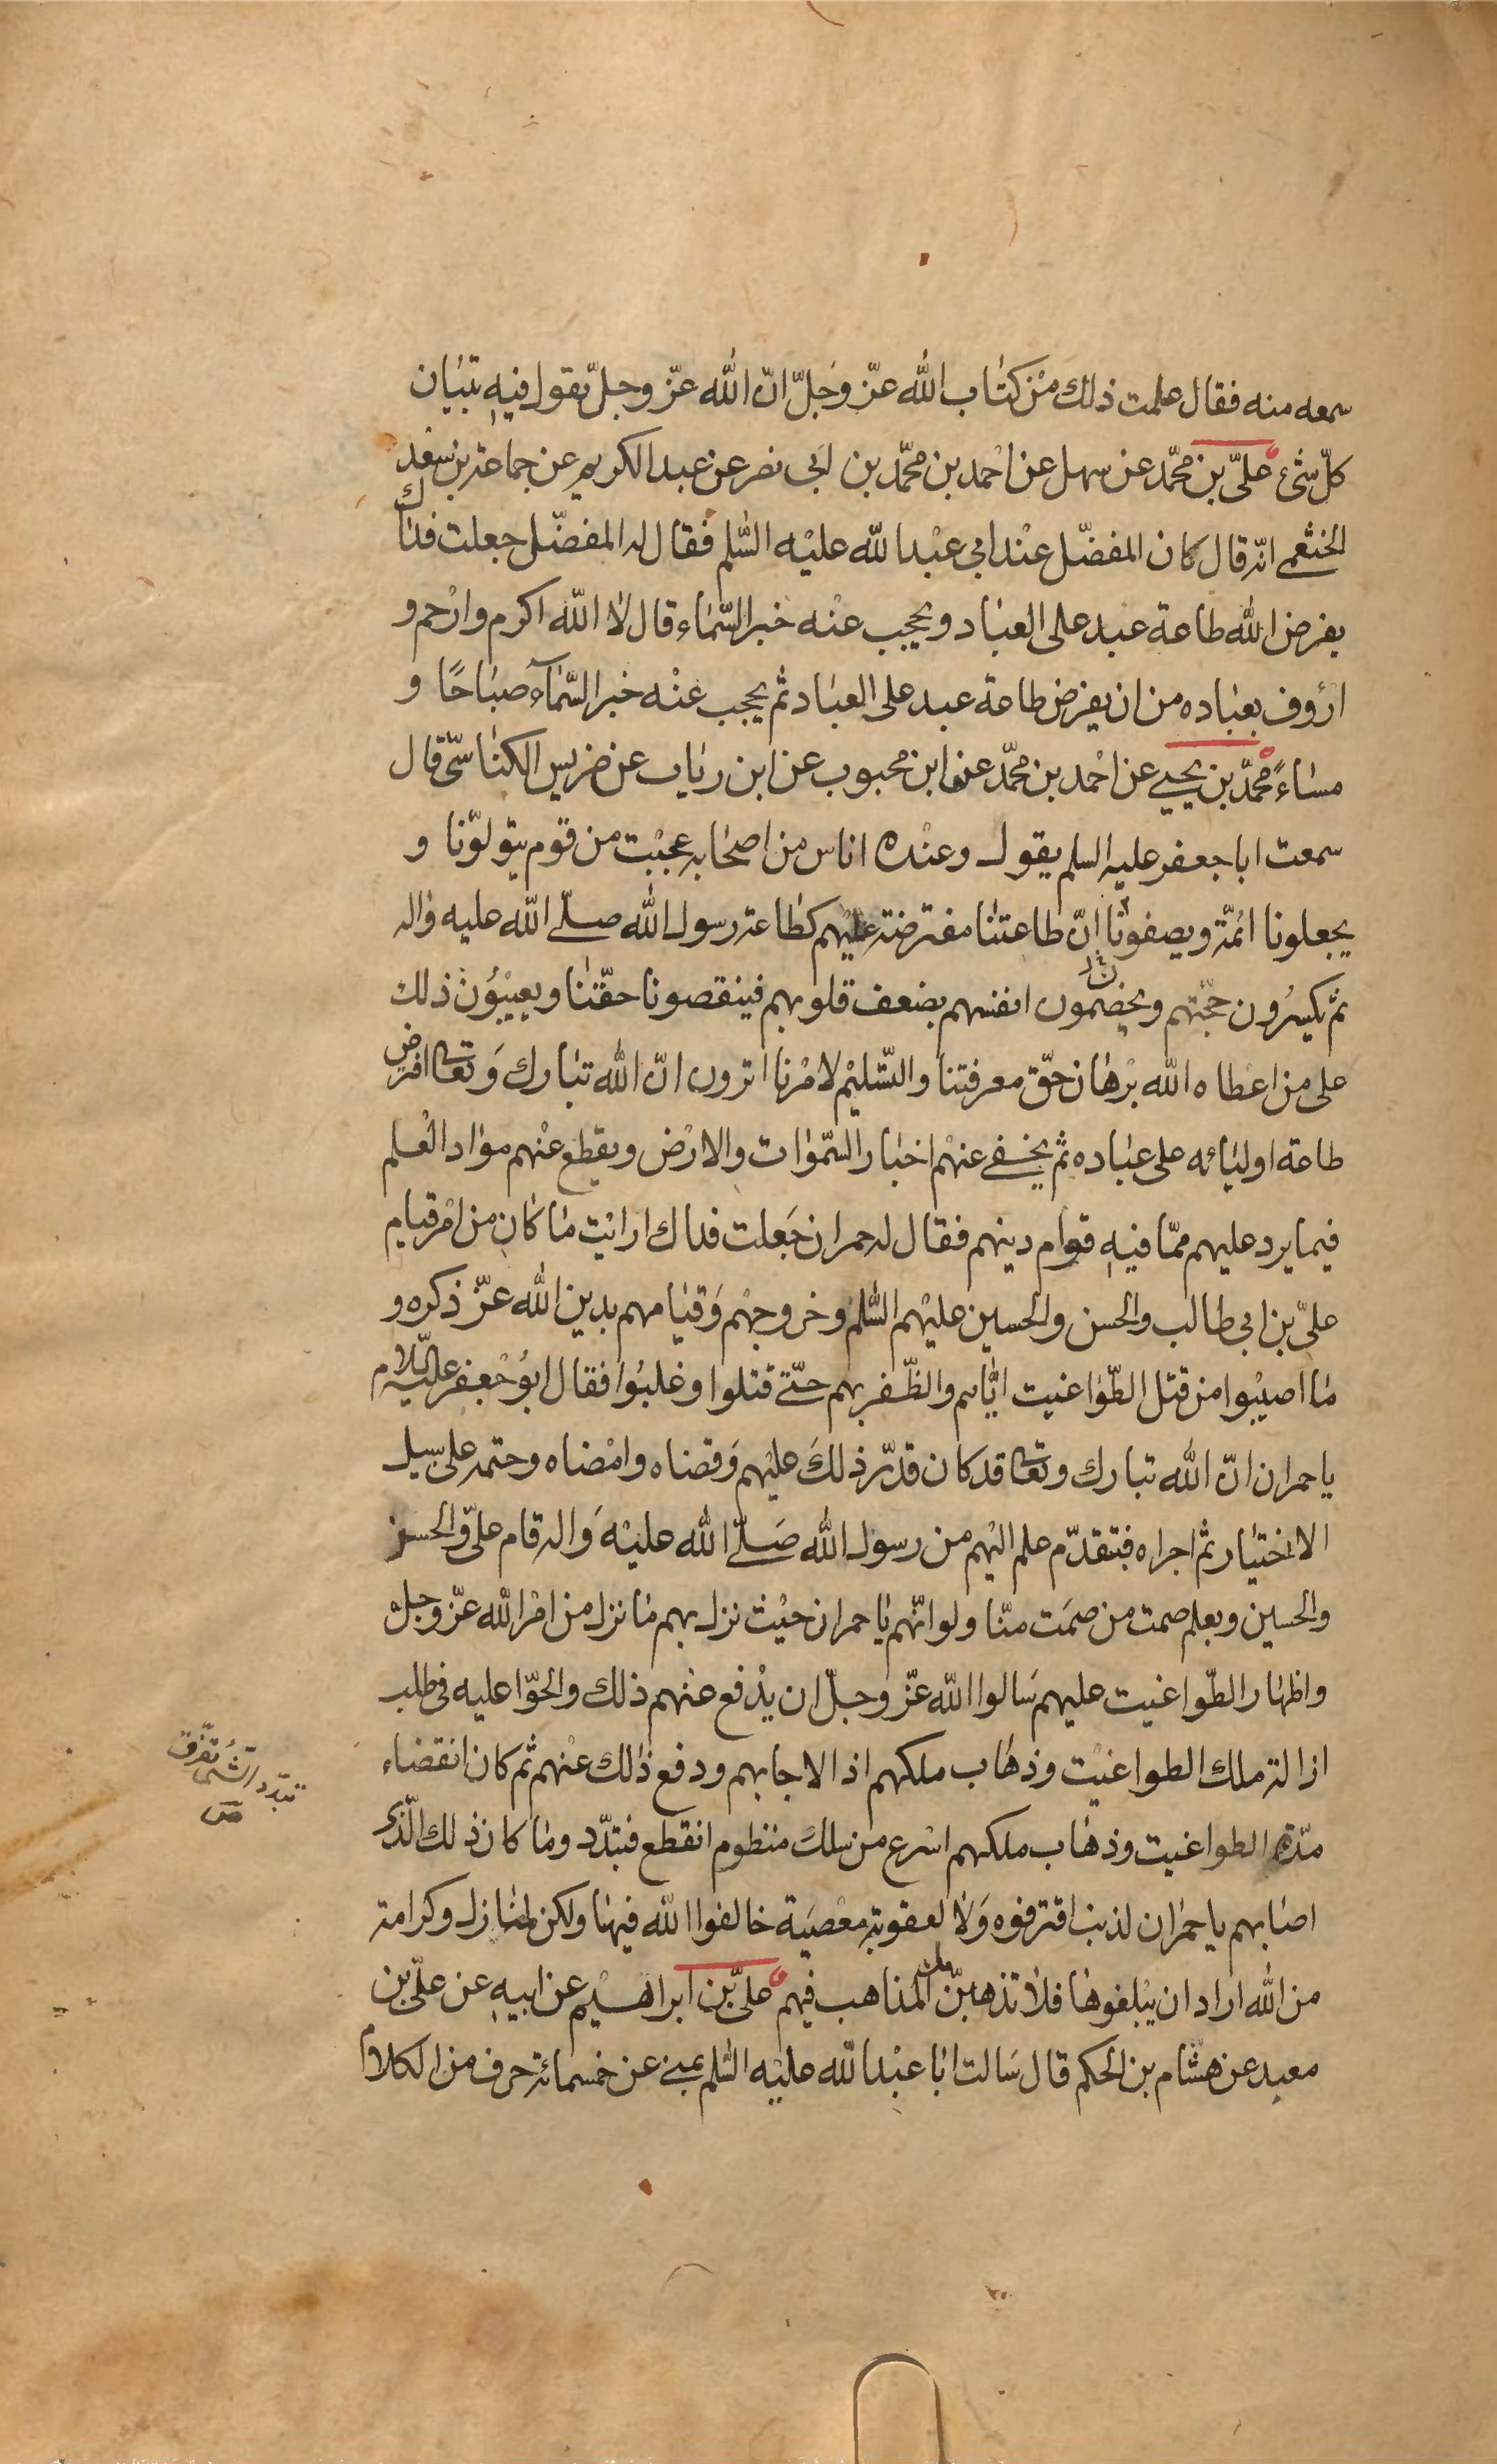 سمعه منه فقال علمت ذلك من كتاب الله عزّ وجلّ انّ الله عزّ وجلّ يقول فيه تبيان
كلّ شئ علىّ بن محمّد عن سهل عن احمد بن محمّد بن ابى نصر عن عبد الكريم عن جماعة بن سعد
الخثعمى انّه قال كان المفضّل عند ابى عبد الله عليه السّلم فقال له المفضّل جعلت فداك
يفرض الله طاعة عبد على العباد ويحجب عنه خبر السّماء قال لا الله اكرم وارحم و
ارؤف بعباده من ان يفرض طاعة عبد على العباد ثم يحجب عنه خبر السّمآء صباحًا و
مساءً محمّد بن يحيى عن احمد بن محمّد عن ابن محبوب عن ابن رياب عن ضريس الكناسىّ قال
سمعت ابا جعفر عليه السلم يقول وعنده اناس من اصحابه عجبت من قوم يتولّونا و
يجعلونا ائمّة ويصفونا انّ طاعتنا مفترضة عليهم كطاعة رسول الله صلّى الله عليه واله
ثم يكسرون حجّتهم ويخصمون انفسهم بضعف قلوبهم فينقصونا حقّنا ويعيبون ذلك
على من اعطاه الله برهان حقّ معرفتنا والتّسليم لامرنا اترون انّ الله تبارك وتعالى افترض
طاعة اوليائه على عباده ثم يخفى عنهم اخبار السّموات والارض ويقطع عنهم مواد العلم
فيما يرد عليهم ممّا فيه قوام دينهم فقال له حمران جعلت فداك ارايت ما كان من امر قيام
علىّ بن ابى طالب والحسن والحسين عليهم السّلم وخروجهم وقيامهم بدين الله عزّ ذكره و
ما اصيبوا من قتل الطّواغيت ايّاهم والظّفر بهم حتّى قتلوا وغلبوا فقال ابو جعفر عليه السّلام
يا حمران انّ الله تبارك وتعالى قد كان قدّر ذلك عليهم وقضاه وامضاه وحتمه على سبيل
الاختيار ثم اجراه فبتقدّم علم اليهم من رسول الله صلّى الله عليه واله قام علىّ والحسن
والحسين وبعلم صمت من صمت منّا ولو انّهم يا حمران حيث نزل بهم ما نزل من امر الله عزّ وجلّ
واظهار الطّواغيت عليهم سالوا الله عزّ وجلّ ان يدفع عنهم ذلك والحّوا عليه فى طلب
ازالة ملك الطواغيت وذهاب ملكهم اذا لاجابهم ودفع ذلك عنهم ثم كان انقضاء
مدّة الطواغيت وذهاب ملكهم اسرع من سلك منظوم انقطع فتبدّد وما كان ذلك الّذى
اصابهم يا حمران لذنب اقترفوه ولا لعقوبة معصية خالفوا الله فيها ولكن لمنازل وكرامة
من الله اراد ان يبلغوها فلا تذهبنّ بك المذاهب فيهم علىّ بن ابراهيم عن ابيه عن علىّ بن
معبد عن هشام بن الحكم قال سالت ابا عبد الله عليه السّلم بمنى عن خمسمائة حرف من الكلام
تبدّد الشّئ تفرّق
ص